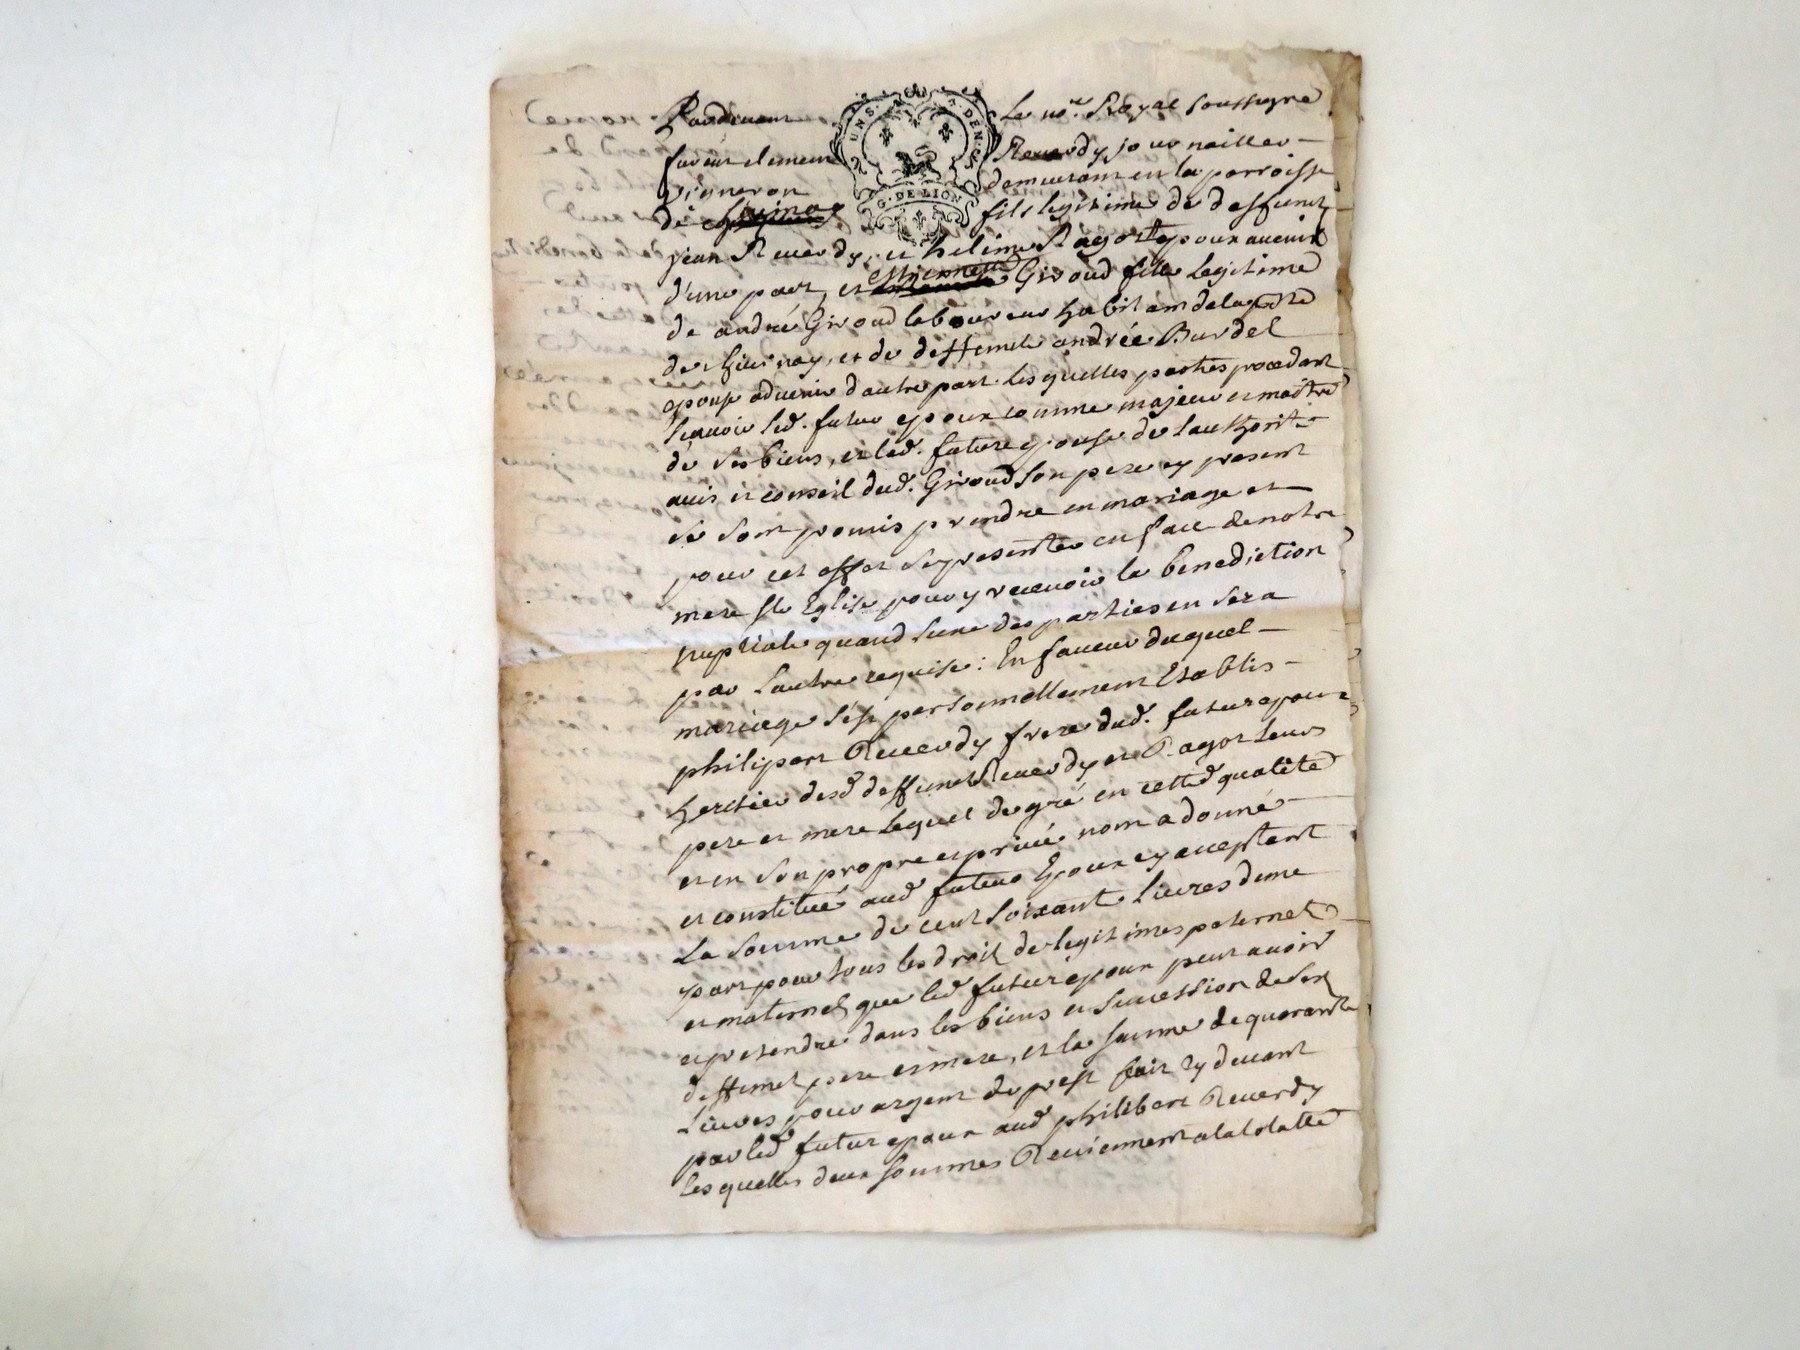 Pardevant Le no.re Royal soussigné
furent Reverdy journailler
vigneron demeurant en la parroisse
de fils legitime de deffunct
jean Reverdy, et heleine Ragot epoux avenir
d'une part, et estiennette Giroud fille legitime
de andré Giroud laboureur habitant de la p.sse
de et de deffuncte andrée Burdel
epouse advenir d'autre part. lesquelles parties procedant
sçauoir led. futur epoux comme majeur et maitre
de ses biens, et lad. future epouse de lauthorité
auis et conseil dud. Giroud son pere cy present
se sont promis prendre en mariage et
pour cet effet se presenter en face de notre
mere ste Eglise pour y receuoir la benediction
nuptiale quand l'une des parties en sera
par l'autre requise: En faueur duquel
mariage s'est personnellement Etablis
philipert Reverdy frere dud. futur epoux
heritier desd. deffunct Reverdy et Ragot leurs
pere et mere lequel de gré en cette qualité
et en son propre et priué nom a donné
et constitué aud. futeur Epoux cy acceptant
La somme de cent soixante liures d'une
part pour tous les droit de legitimes paternel
et maternel que led. futur epoux peut auoir
et pretendre dans les biens et succession de ses
deffunct pere et mere, et la somme de quarante
liures pour argent de prest fait cy deuant
par led. futur epoux aud. philibert Reverdy
lesquelles deux sommes Reviennent a la totalle
UNS. DEN.
G. DE LION